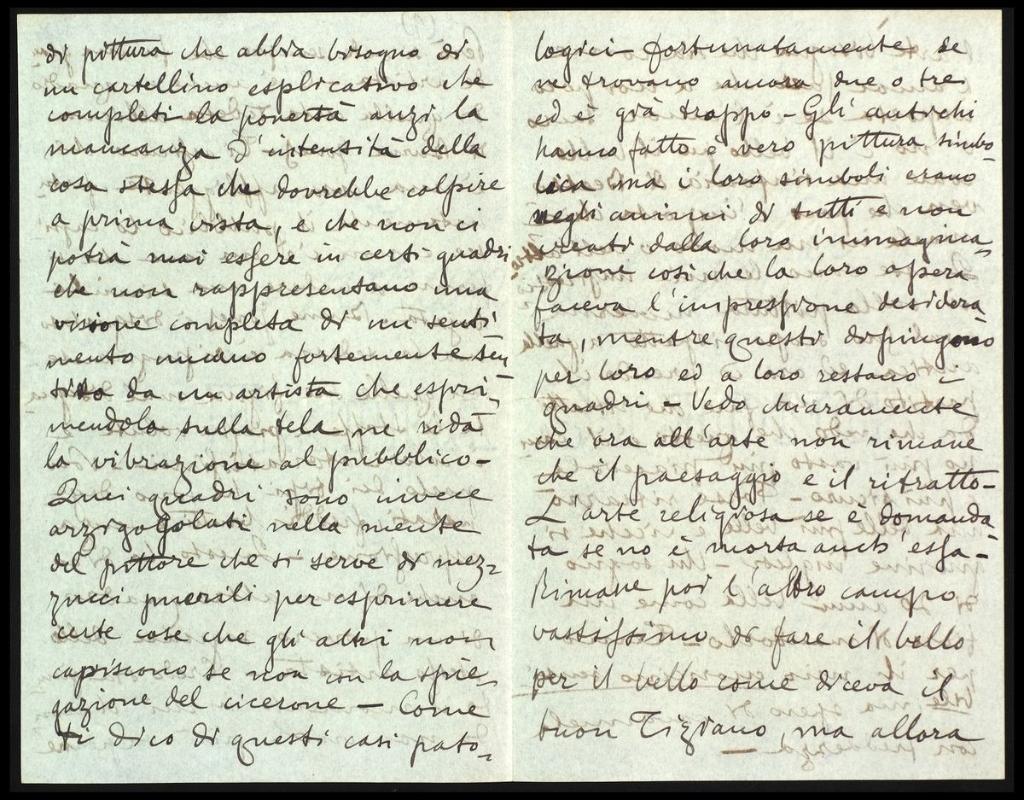 di pittura che abbia bisogno di
un cartellino esplicativo che
completi la povertà anzi la
mancanza d'intensità della
cosa stessa che dovrebbe colpire
a prima vista, e che non ci
potrà mai essere in certi quadri
che non rappresentano una
visione completa di un senti
mento umano fortemente sen-
tito da un artista che espri-
mendola sulla tela ne ridà
la vibrazione al pubblico -
Quei quadri sono invece
arzigogolati nella mente
del pittore che si serve di mez=
zucci puerili per esprimere
certe cose che gli altri non
capiscono se non con la spie-
gazione del cicerone - Come
ti dico di questi casi pato=
logici fortunatamente se
ne trovano ancora due o tre
ed è già troppo - Gli antichi
hanno fatto è vero pittura simbo-
lica ma i loro simboli erano
negli animi di tutti e non
creati dalla loro immagina=
zione così che la loro opera
faceva l'impressione desidera
ta, mentre questi dipingono
per loro ed a loro restano i
quadri - Vedo chiaramente
che ora all'arte non rimane
che il paesaggio e il ritratto -
L'arte religiosa se è domanda
ta se no è morta anch'essa -
Rimane poi l'altro campo
vastissimo di fare il bello
per il bello come diceva il
buon Tiziano, ma allora